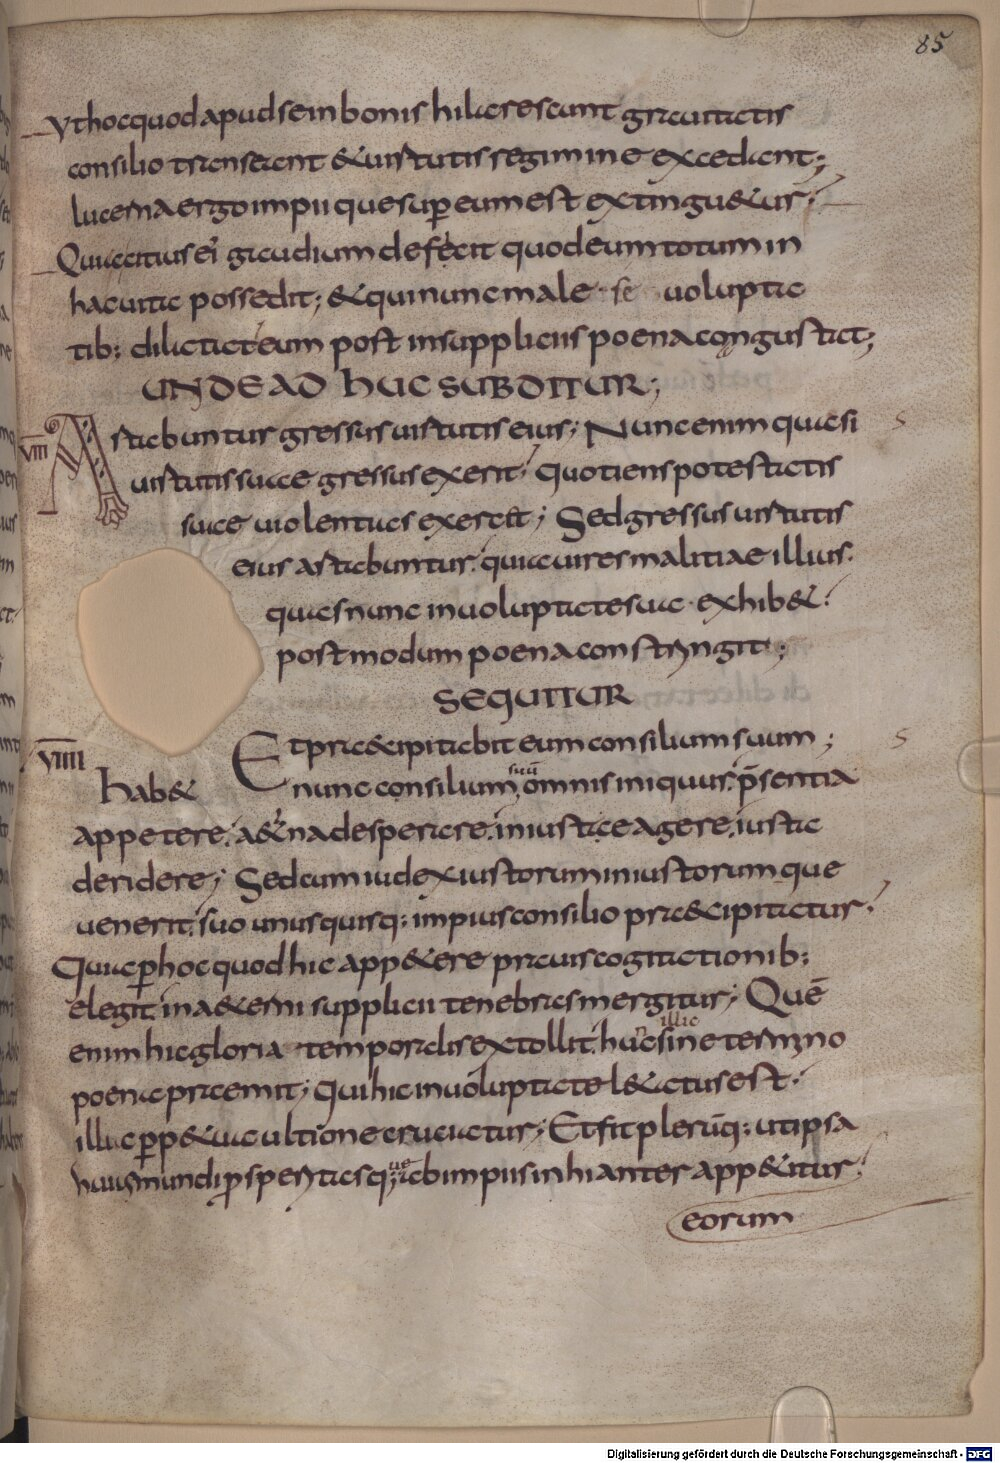 85
ut hoc quod apud se in bonis hilarescunt gravitatis
consilio transeant & virtutis regimine excedant;
lucerna ergo impii que sup eum est extingu&ur.
Quia citius ei gaudium deficit quod eum totum in
hac vita possedit; & qui nunc male se volupta
tib: dilatat eum post in suppliciis poena congustat;
UNDE ADHUC SUBDITUR;
VIII Artabuntur gressus virtutis eius; Nunc enim quasi
virtutis suae gressus exerit. quotiens potestatis
suae violentias exercet; Sed gressus virtutis
eius artabuntur. quia vires malitiae illius.
quas nunc in voluptate sua exhib&.
postmodum poena constringit;
SEQUITUR
VIIII Et praecipitabit eum consilium suum;
hab& nunc consilium suū omnis iniquus. p̄sentia
appetere. a&erna desperare. iniusta agere. iusta
deridere; Sed cum iudex iustorum iniustorumque
venerit. suo unusquisq: impius consilio praecipitatur.
Quia p hoc quod hic app&ere pravis cogitationib:
elegit. in a&erni supplicii tenebras mergitur; Quē
enim hic gloria temporalis extollit. hunc illic sine termino
poena premit; Qui hic in voluptate l&atus est.
illic pp&ua ultione cruciatur; Et fit plerūq: ut ipsa
huius mundi pspentas que ab impiis inhianter app&itur.
eorum
Digitalisierung gefördert durch die Deutsche Forschungsgemeinschaft - DFG